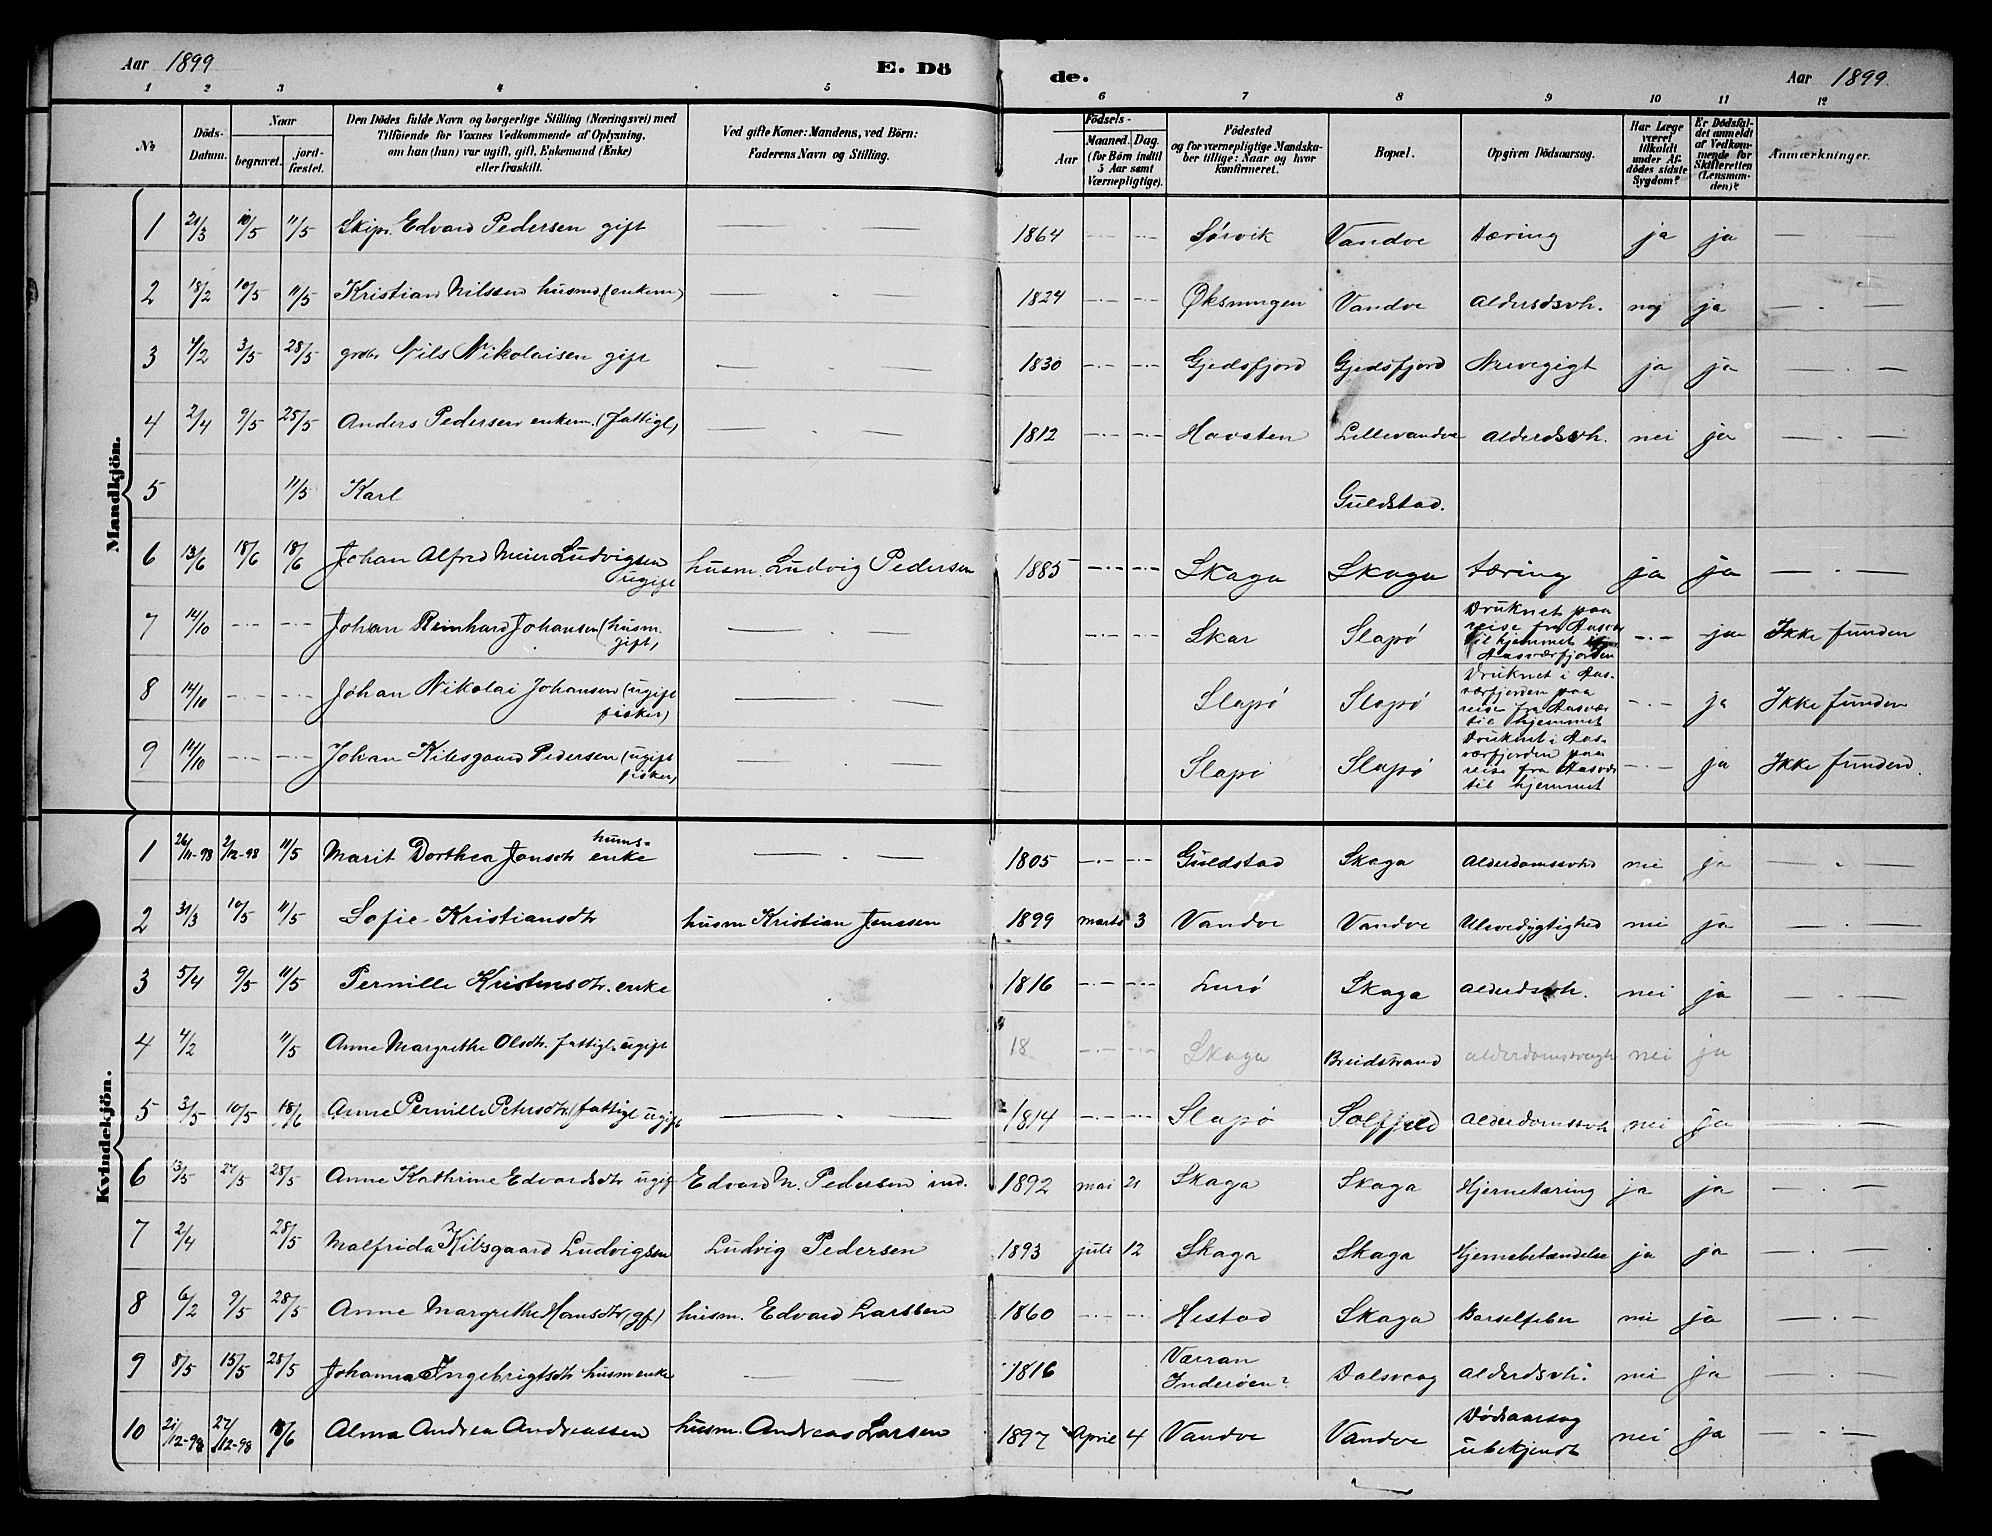 Aar 1899 E. Dö de. Aar 1899.
1 2 3 4 5 6 7 8 9 10 11 12
№ Döds-Datum. Naar begravet. jord-fæstet. Den Dödes fulde Navn og borgerlige Stilling (Næringsvei) med Tilföiende for Voxnes Vedkommende af Oplysning, om han (hun) var ugift, gift, Enkemand (Enke) eller fraskilt. Ved gifte Koner: Mandens, ved Börn: Faderens Navn og Stilling. Födsels- Aar Maaned. Dag. (for Börn indtil 5 Aar samt Værnepligtige). Födested og for værnepligtige Mandskaber tillige: Naar og hvor konfirmeret. Bopæl. Opgiven Dödsaarsag. Har Læge været tilkaldt under Afdödes sidste Sygdom? Er Dödsfaldet anmeldt af Vedkommende for Skifteretten (Lensmanden)? Anmærkninger.
Mandkjön.
1 21/3 10/5 11/5 Skipr. Edvard Pedersen gift — . — 1864 -.- -.- Sørvik Vandve tæring ja ja — . —
2 18/2 10/5 11/5 Kristian Nilssen husmd (enkem) — . — 1824 -.- -.- Øksningen Vandve Alderdsvh. nej ja — . —
3 4/2 3/5 28/5 grdbr Nils Nikolaisen gift — . — 1830 -.- -.- Gjedsfjord Gjedsfjord Nærvegigt ja ja — . —
4 2/4 9/5 25/5 Anders Pedersen enkem. (fattigl) — . — 1812 -.- -.- Havsten Lillevandve Alderdsvh. nei ja — . —
5 11/5 Karl Guldstad.
6 13/6 18/6 18/6 Johan Alfred Meier Ludvigsen ugift husm. Ludvig Pedersen 1885 -.- -.- Skaga Skaga tæring ja ja — . —
7 14/10 -.- -.- Johan Reinhard Johansen (husm. gift) — . — -.- -.- Skar Slapø Druknet paa reise fra Aasvær til hjemmet i Aasværfjorden -.- ja Ikke funden
8 14/10 -.- -.- Johan Nikolai Johansen (ugift fisker) — . — Slapø Slapø Druknet i Aasværfjorden paa reise fra Aasvær til hjemmet -.- ja Ikke funden
9 14/10 -.- -.- Johan Kilsgaard Pedersen (ugift fisker) — . — Slapø Slapø Druknet i Aasværfjorden paa reise fra Aasvær til hjemmet -.- ja Ikke funden.
Kvindekjön.
1 26/11-98 2/12-98 11/5 Marit Dorthea Jonsdtr husms-enke — . — 1805 -.- -.- Guldstad Skaga Alderdomssvhd nei ja — . —
2 31/3 10/5 11/5 Sofie Kristiansdtr husm Kristian Jenssen 1899 marts 3 Vandve Vandve Ulevedygtighed nei ja — . —
3 5/4 9/5 11/5 Pernille Kristensdtr. enke 1816 -.- -.- Lurø Skaga Alderdsvh. nei ja — . —
4 4/2 11/5 Anne Margrethe Olsdtr. fattigl. ugift 18 -.- -.- Skaga Breidstrand alderdomssvagh nei ja
5 3/5 10/5 18/6 Anne Pernille Petersdtr (fattigl ugift — . — 1814 -.- -.- Slapø Solfjeld Alderdomssvh nei ja — . —
6 13/5 27/5 28/5 Anne Kathrine Edvardsdtr ugift Edvard M. Pedersen ind. 1892 mai 21 Skaga Skaga Hjernetæring ja ja — . —
7 2/4 28/5 Malfrida Kilsgaard Ludvigsen Ludvig Pedersen 1893 juli 12 Skaga Skaga Hjernebetændelse ja ja — . —
8 6/2 9/5 28/5 Anne Margrethe Hansdtr (gf) husm. Edvard Larssen 1860 -.- -.- Hestad Skaga Barselfeber nei ja — . —
9 8/5 15/5 28/5 Johanna Ingebrigtsdtr husm enke — — 1816 Værran Inderøen? Dalsvaag Alderdsvh. nei ja — . —
10 21/12-98 27/12-98 18/6 Alma Andrea Andreassen husm. Andreas Larsen 1897 April 4 Vandve Vandve Dødsaarsag ubekjendt nei ja — . —